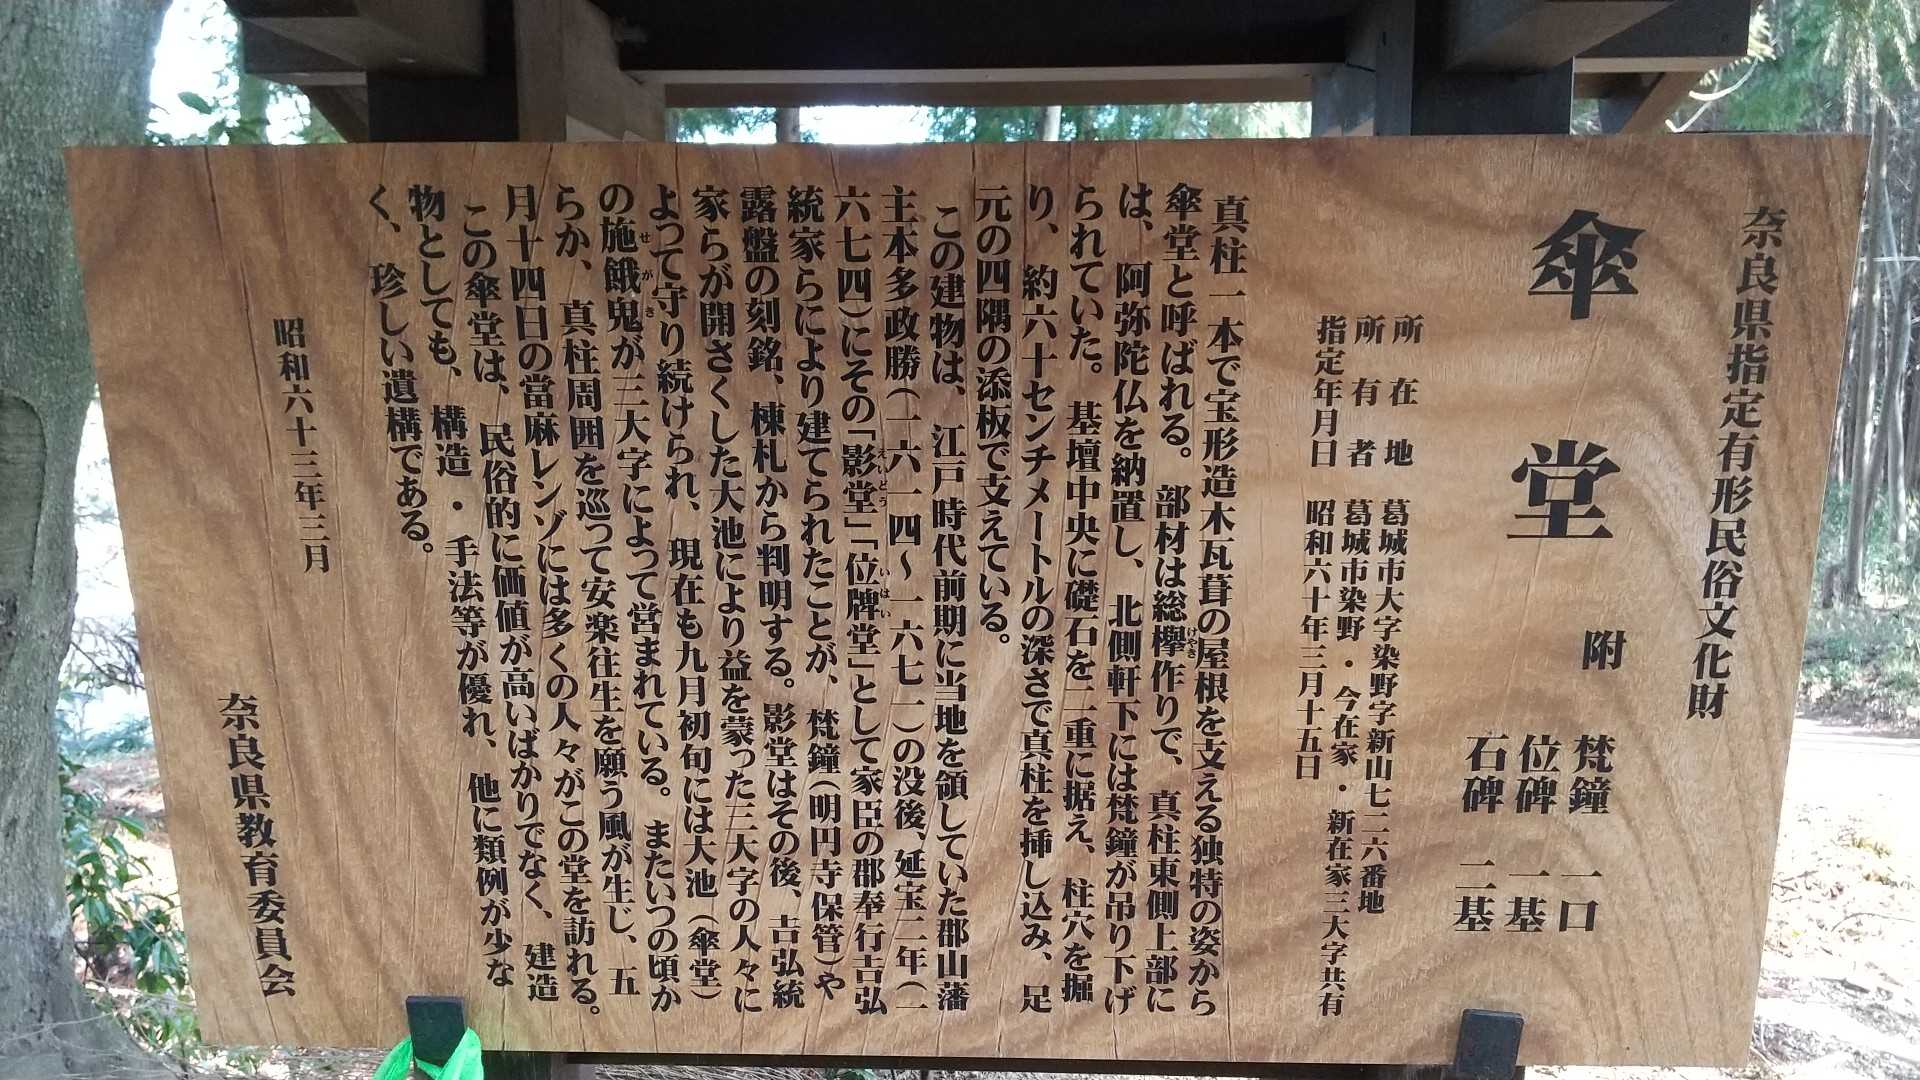 奈良県指定有形民俗文化財
傘堂 附 梵鐘 一口
位碑 一基
石碑 二基
所在地 葛城市大字染野字新山七二六番地
所有者 葛城市染野・今在家・新在家三大字共有
指定年月日 昭和六十年三月十五日
真柱一本で宝形造木瓦葺の屋根を支える独特の姿から
傘堂と呼ばれる。部材は総欅作りで、真柱東側上部に
は、阿弥陀仏を納置し、北側軒下には梵鐘が吊り下げ
られていた。基壇中央に礎石を二重に据え、柱穴を掘
り、約六十センチメートルの深さで真柱を挿し込み、足
元の四隅の添板で支えている。
この建物は、江戸時代前期に当地を領していた郡山藩
主本多政勝(一六一四～一六七一)の没後、延宝二年(一
六七四)にその「影堂」「位牌堂」として家臣の郡奉行吉弘
統家らにより建てられたことが、梵鐘(明円寺保管)や
露盤の刻銘、棟札から判明する。影堂はその後、吉弘統
家らが開さくした大池により益を蒙った三大字の人々に
よって守り続けられ、現在も九月初旬には大池(傘堂)
の施餓鬼が三大字によって営まれている。またいつの頃か
らか、真柱周囲を巡って安楽往生を願う風が生じ、五
月十四日の當麻レンゾには多くの人々がこの堂を訪れる。
この傘堂は、民俗的に価値が高いばかりでなく、建造
物としても、構造・手法等が優れ、他に類例が少な
く、珍しい遺構である。
昭和六十三年三月
奈良県教育委員会